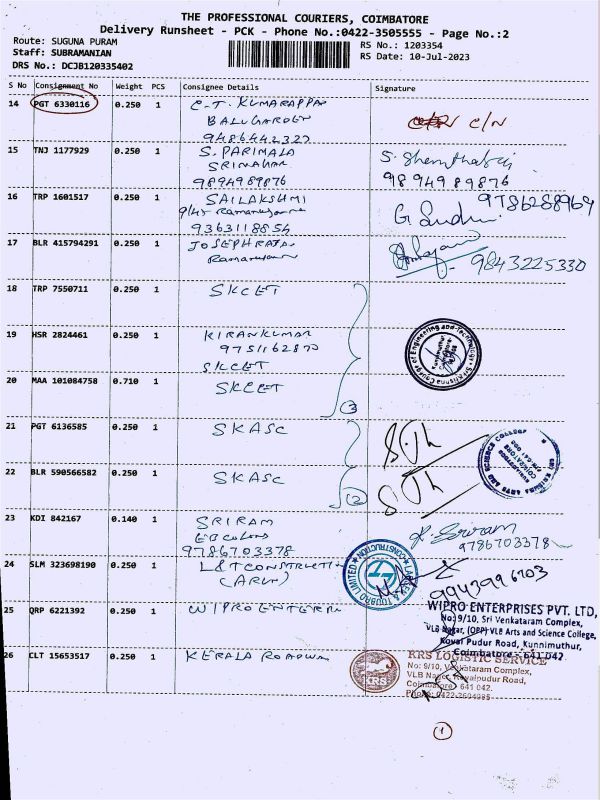 THE PROFESSIONAL COURIERS, COIMBATORE
Delivery Runsheet - PCK - Phone No.:0422-3505555 - Page No.:2
Route: SUGUNA PURAM
Staff: SUBRAMANIAN
DRS No.: DCJB120335402
RS No.: 1203354
RS Date: 10-Jul-2023
S No Consignment No Weight PCS Consignee Details Signature
14 PGT 6330116 0.250 1 C.T. KUMARAPPAN
BALUGARDEN
9486442327
C/N
15 TNJ 1177929 0.250 1 S. PARIMALA
SRINAGAR
9894989876
9894989876
16 TRP 1601517 0.250 1 SAILAKSHMI
9363118854
9786288969
17 BLR 415794291 0.250 1 JOSEPHRAJAN
9843225330
18 TRP 7550711 0.250 1 SKCET
19 HSR 2824461 0.250 1 KIRANKUMAR
9751162870
SKCET
20 MAA 101084758 0.710 1 SKCET
3
21 PGT 6136585 0.250 1 SKASC
22 BLR 590566582 0.250 1 SKASC
2
23 KDI 842167 0.140 1 SRIRAM
EB Colony
9786703378
R. Sriram
9786703378
24 SLM 323698190 0.250 1 L&T CONSTRUCTION
(ARUN)
LARSEN & TOUBRO LIMITED
CONSTRUCTION
9943996703
25 QRP 6221392 0.250 1 WIPRO ENTERPRI
WIPRO ENTERPRISES PVT. LTD,
No: 9/10, Sri Venkataram Complex,
VLB Nagar, (OPP) VLB Arts and Science College,
Kovai Pudur Road, Kunnimuthur,
Coimbatore - 641 042
26 CLT 15653517 0.250 1 KERALA ROADWAY
KRS
KRS LOGISTIC SERVICE
No: 9/10, Venkataram Complex,
VLB Nagar, Kovaipudur Road,
Coimbatore - 641 042.
Phone: 0422-2604085
1